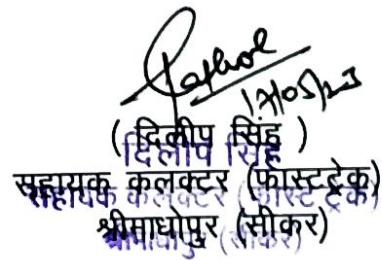 17/05/23
( दिलीप सिंह )
दिलीप सिंह
सहायक कलक्टर (फास्टट्रेक)
सहायक कलक्टर (फास्ट ट्रेक)
श्रीमाधोपुर (सीकर)
श्रीमाधोपुर (सीकर)